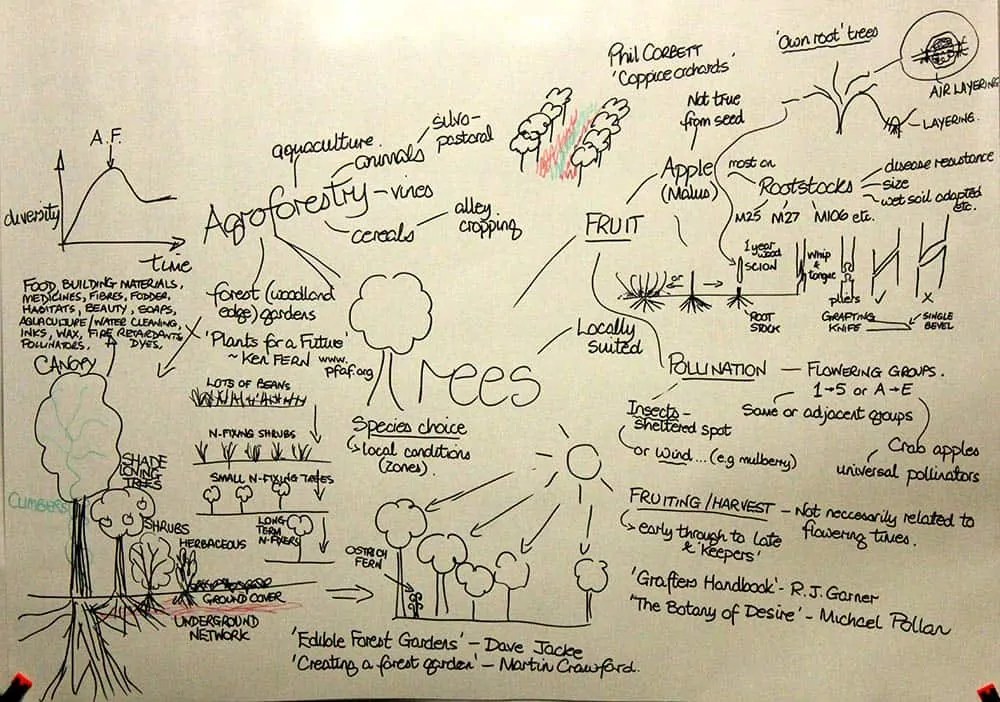 A.F.
diversity
time
aquaculture
animals
silvo-
pastoral
Agroforestry
vines
cereals
alley
cropping
forest (woodland
edge) gardens
'Plants for a Future'
~ Ken FERN www.
pfaf.org
FOOD, BUILDING MATERIALS,
MEDICINES, FIBRES, FODDER,
HABITATS, BEAUTY, SOAPS,
AQUACULTURE/WATER CLEANING,
INKS, WAX, FIRE RETARDANTS,
POLLINATORS, DYES,
CANOPY
CLIMBERS
SHADE
LOVING
TREES
SHRUBS
HERBACEOUS
GROUND COVER
UNDERGROUND
NETWORK
LOTS OF BEANS
N-FIXING SHRUBS
SMALL N-FIXING TREES
LONG
TERM
N-FIXERS
Trees
Species choice
local conditions
(zones).
OSTRICH
FERN
'Edible Forest Gardens' - Dave Jacke
'Creating a forest garden' - Martin Crawford.
Phil CORBETT
'Coppice orchards'
'Own root' trees
AIR LAYERING
LAYERING.
Not true
from seed
Apple
(Malus)
most on
Rootstocks
disease resistance
size
wet soil adapted
etc.
M25 M27 M106 etc.
FRUIT
or
1 year
wood
SCION
ROOT
STOCK
Whip
&
tongue
pliers
✓
X
GRAFTING
KNIFE
SINGLE
BEVEL
Locally
suited
POLLINATION - FLOWERING GROUPS.
1→5 or A→E
Same or adjacent groups
Crab apples
universal pollinators
Insects -
sheltered spot
or Wind... (e.g mulberry)
FRUITING/HARVEST - Not neccesarily related to
flowering times.
early through to late
& 'keepers'
'Grafters Handbook' - R.J. Garner
'The Botany of Desire' - Michael Pollan